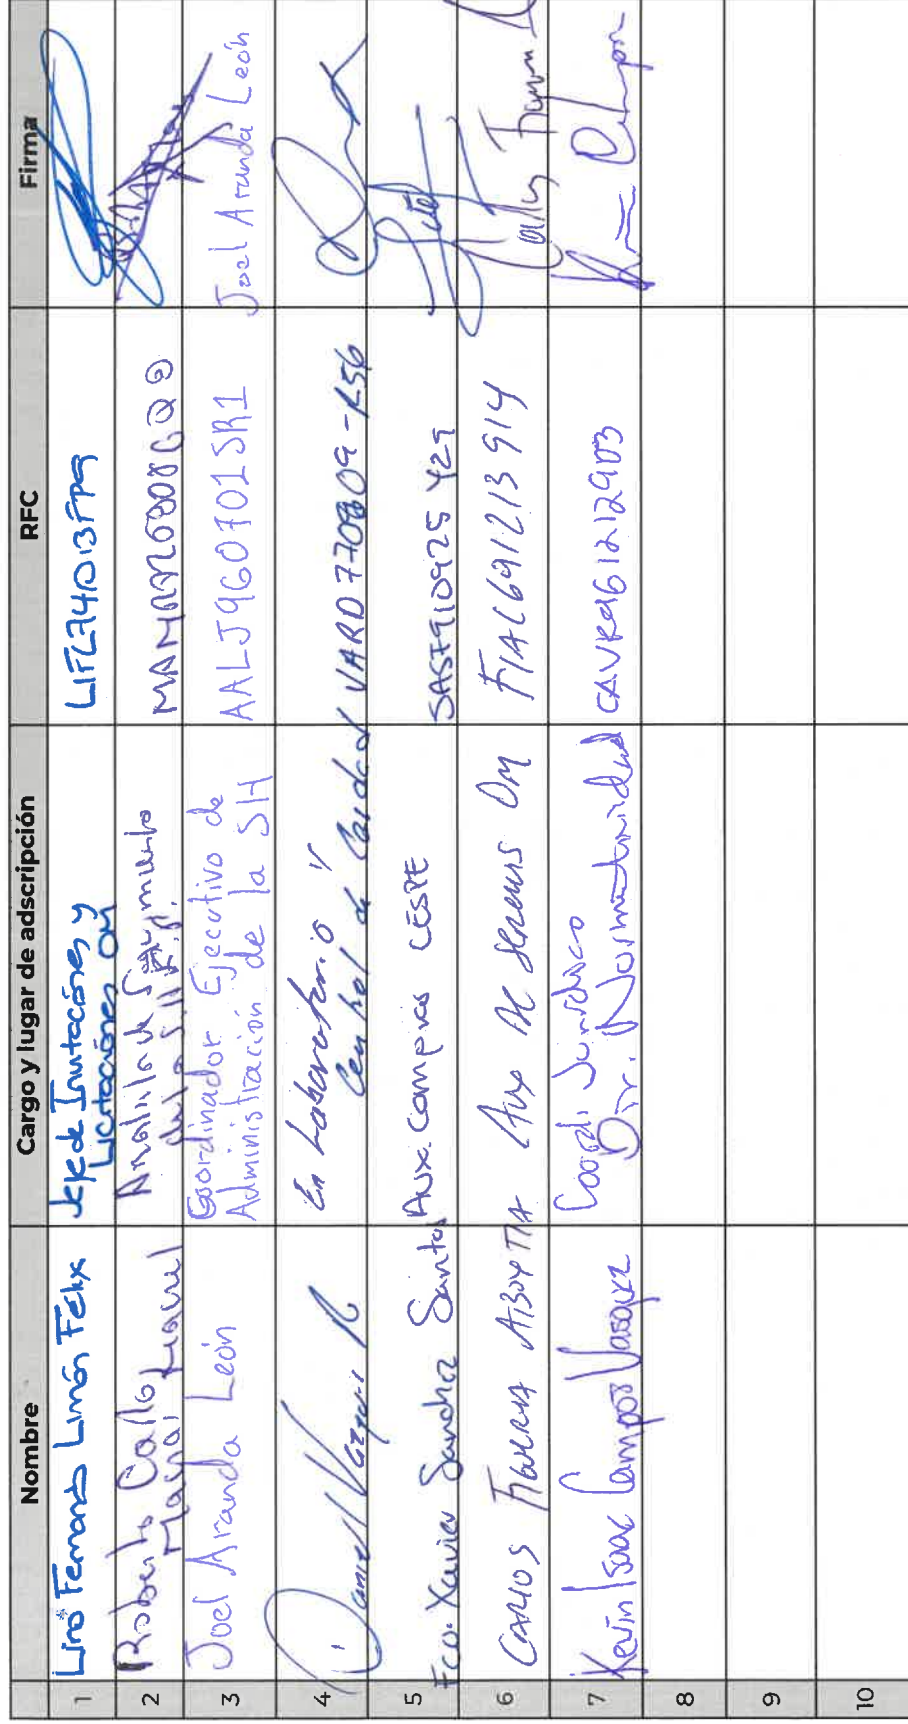 Nombre Cargo y lugar de adscripción RFC Firma
1 Lino Fernando Limón Félix Jefe de Invitaciones y Licitaciones OM LIFL741013FP9
2 Roberto Carlo Manuel Analista de Seguimiento de la S.H.
3 Joel Aranda León Coordinador Ejecutivo de Administración de la SH AALJ960701SR1 Joel Aranda León
4 Daniel Vazquez R En Laboratorio y Control de Calidad VARD770809-R56
5 Fco. Xavier Sanchez Santos Aux. Compras CESPE SASF910925 Y29
6 CARLOS Aux DE OM FIAC691213914
7 Kevin Isaac Campos Vasquez Coord. Jurídico Dir. Normatividad CAVK961212903
8
9
10